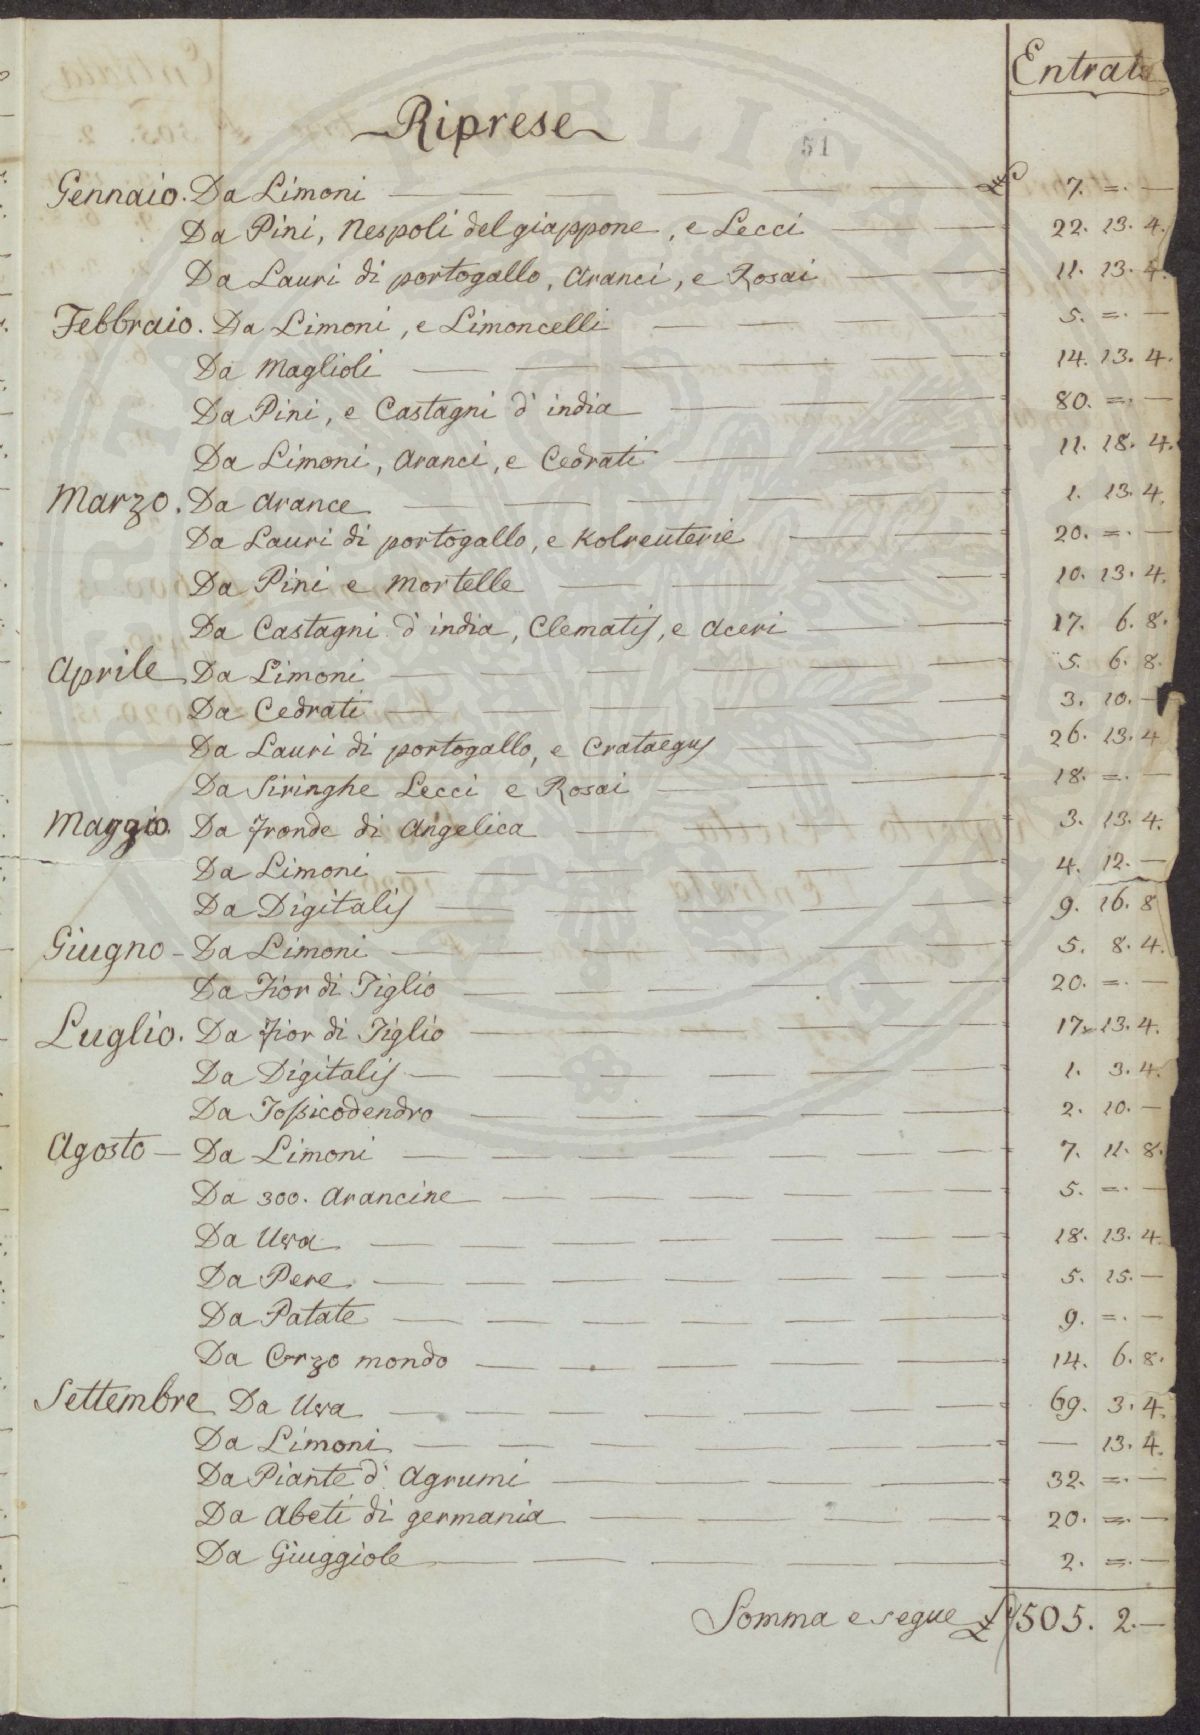 Entrata
Riprese
51
Gennaio. Da Limoni £ 7. =. —
Da Pini, Nespoli del giappone, e Lecci 22. 13. 4.
Da Lauri di portogallo, Aranci, e Rosai 11. 13. 4.
Febbraio. Da Limoni, e Limoncelli 5. =. —
Da Maglioli 14. 13. 4.
Da Pini, e Castagni d' india 80. =. —
Da Limoni, Aranci, e Cedrati 11. 18. 4.
Marzo. Da Arance 1. 13. 4.
Da Lauri di portogallo, e Kolreuterie 20. =. —
Da Pini e Mortelle 10. 13. 4.
Da Castagni d' india, Clematis, e Aceri 17. 6. 8.
Aprile Da Limoni 5. 6. 8.
Da Cedrati 3. 10. —
Da Lauri di portogallo, e Crataegus 26. 13. 4
Da Siringhe Lecci e Rosai 18. =. —
Maggio. Da Fronde di Angelica 3. 13. 4.
Da Limoni 4. 12. —
Da Digitalis 9. 16. 8
Giugno - Da Limoni 5. 8. 4.
Da Fior di Tiglio 20. =. —
Luglio. Da Fior di Tiglio 17. 13. 4.
Da Digitalis 1. 3. 4.
Da Tossicodendro 2. 10. —
Agosto — Da Limoni 7. 11. 8.
Da 300. Arancine 5. =. —
Da Uva 18. 13. 4.
Da Pere 5. 15. —
Da Patate 9. =. —
Da Orzo mondo 14. 6. 8.
Settembre Da Uva 69. 3. 4.
Da Limoni — 13. 4.
Da Piante d' Agrumi 32. =. —
Da Abeti di germania 20. =. —
Da Giuggiole 2. =. —
Somma e segue £ 505. 2. —